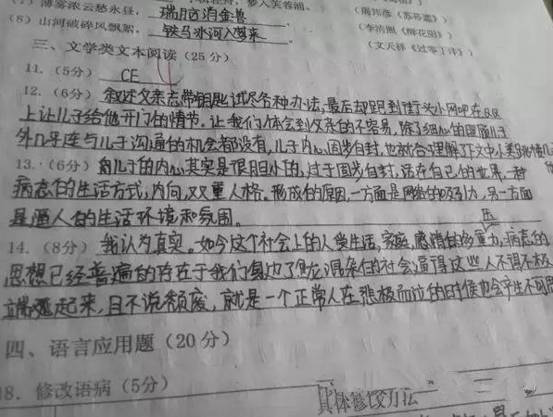 (7) 薄雾浓云愁永昼, 瑞脑消金兽 (李清照《醉花阴》)
(8) 山河破碎风飘絮, 铁马冰河入梦来 (文天祥《过零丁洋》)
三、文学类文本阅读 (25分)
11. (5分) CE
12. (6分) 叙述父亲忘带钥匙试尽各种办法,最后却跑到街头小网吧在QQ
上让儿子给他开门的情节,让我们体会到父亲的不容易,除了细心的照顾儿子
外几乎连与儿子沟通的机会都没有,儿子内心固步自封,也就合理解了文中小
13. (6分) 自儿子的内心其实是很胆小的,过于固步自封,活在自己的世界,一种
病态的生活方式,内向,双重人格。形成的原因,一方面是网络的吸引力,另一方面
是逼人的生活环境和氛围。
14. (8分) 我认为真实。如今这个社会上的人受生活,家庭,感情的多重压力,病态的
思想已经普遍的存在于我们身边了
混杂的社会逼得这些人不得不极
端起来,且不说颓废,就是一个正常人在
的时候也会产生不同
四、语言应用题 (20分)
18. 修改语病 (5分)
具体修改方法